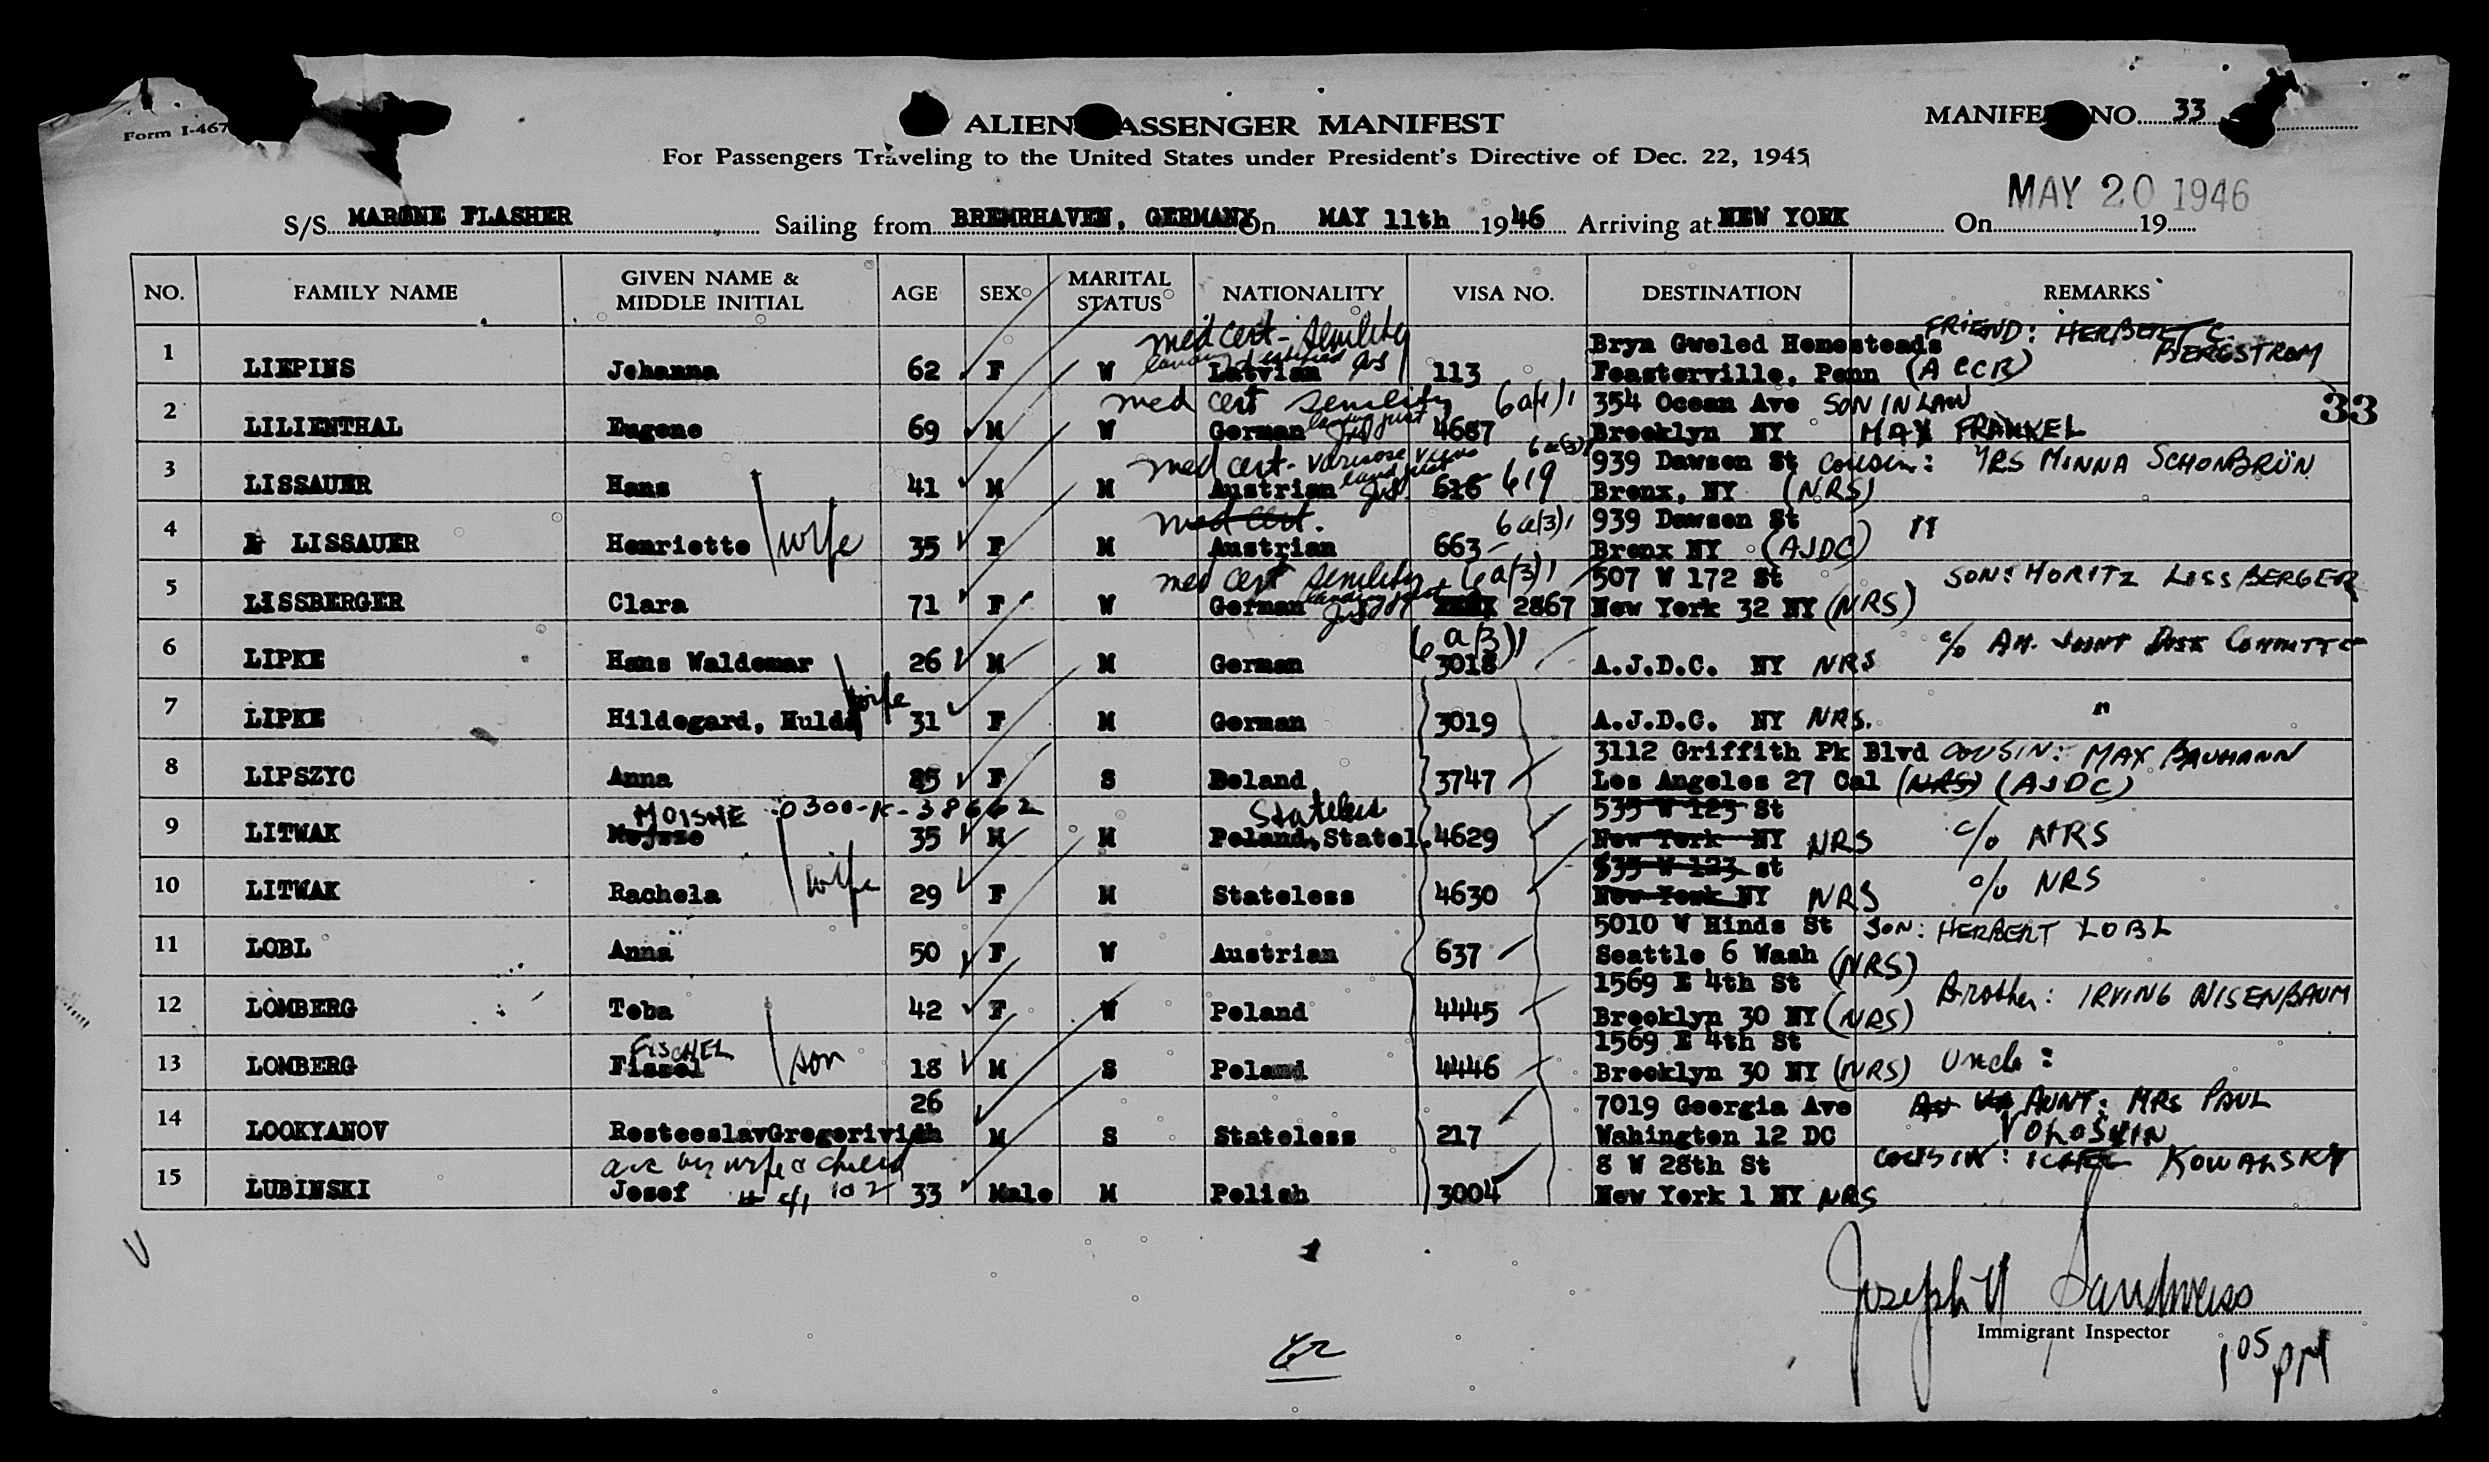 Form I-467
ALIEN ASSENGER MANIFEST
MANIFE NO. 33
For Passengers Traveling to the United States under President's Directive of Dec. 22, 1945
MAY 20 1946
S/S MARINE FLASHER Sailing from BREMRHAVEN, GERMANY On MAY 11th 1946 Arriving at NEW YORK On 19
NO. FAMILY NAME GIVEN NAME & MIDDLE INITIAL AGE SEX MARITAL STATUS NATIONALITY VISA NO. DESTINATION REMARKS
med cert - senility Bryn Gweled Homesteads FRIEND: HERBERT C. BERGSTROM
1 LIEPINS Johanna 62 F W Latvian 113 Feasterville, Penn (ACCR)
med cert senility 6a(1)1 354 Ocean Ave SON IN LAW 33
2 LILIENTHAL Eugene 69 M W German 4687 Brooklyn NY MAX FRANKEL
med cert - varicose veins 6a(3)1 939 Dawson St Cousin: MRS MINNA SCHONBRÜN
3 LISSAUER Hans 41 M M Austrian 616 619 Bronx, NY (NRS)
med cert. 6a(3)1 939 Dawson St "
4 LISSAUER Henriette wife 35 F M Austrian 663 Bronx NY (AJDC)
med cert senility 6a(3)1 507 W 172 St SON: MORITZ LISSBERGER
5 LISSBERGER Clara 71 F W German 2867 New York 32 NY (NRS)
6a(3)1 c/o AM. JOINT DIST COMMITTEE
6 LIPKE Hans Waldemar 26 M M German 3018 A.J.D.C. NY NRS
7 LIPKE Hildegard, Hulda wife 31 F M German 3019 A.J.D.C. NY NRS. "
3112 Griffith Pk Blvd COUSIN: MAX BAUMANN
8 LIPSZYC Anna 25 F S Poland 3747 Los Angeles 27 Cal (NRS) (AJDC)
MOISHE 0300-K-38662 Stateless 535 W 123 St
9 LITWAK Mojsze 35 M M Poland, Statel. 4629 New York NY NRS c/o NRS
535 W 123 st
10 LITWAK Rachela wife 29 F M Stateless 4630 New York NY NRS c/o NRS
5010 W Hinds St SON: HERBERT LOBL
11 LOBL Anna 50 F W Austrian 637 Seattle 6 Wash (NRS)
1569 E 4th St Brother: IRVING NISENBAUM
12 LOMBERG Toba 42 F W Poland 4445 Brooklyn 30 NY (NRS)
FISCHEL 1569 E 4th St
13 LOMBERG Fiszel son 18 M S Poland 4446 Brooklyn 30 NY (NRS) Uncle:
26 7019 Georgia Ave AUNT: MRS PAUL VOLOSHIN
14 LOOKYANOV RosteeslavGregorivich M S Stateless 217 Wahington 12 DC
acc by wife & child 8 W 28th St COUSIN: KOWALSKY
15 LUBINSKI Josef 102 33 Male M Polish 3004 New York 1 NY NRS
Joseph Sandweiss
Immigrant Inspector
1 05 PM